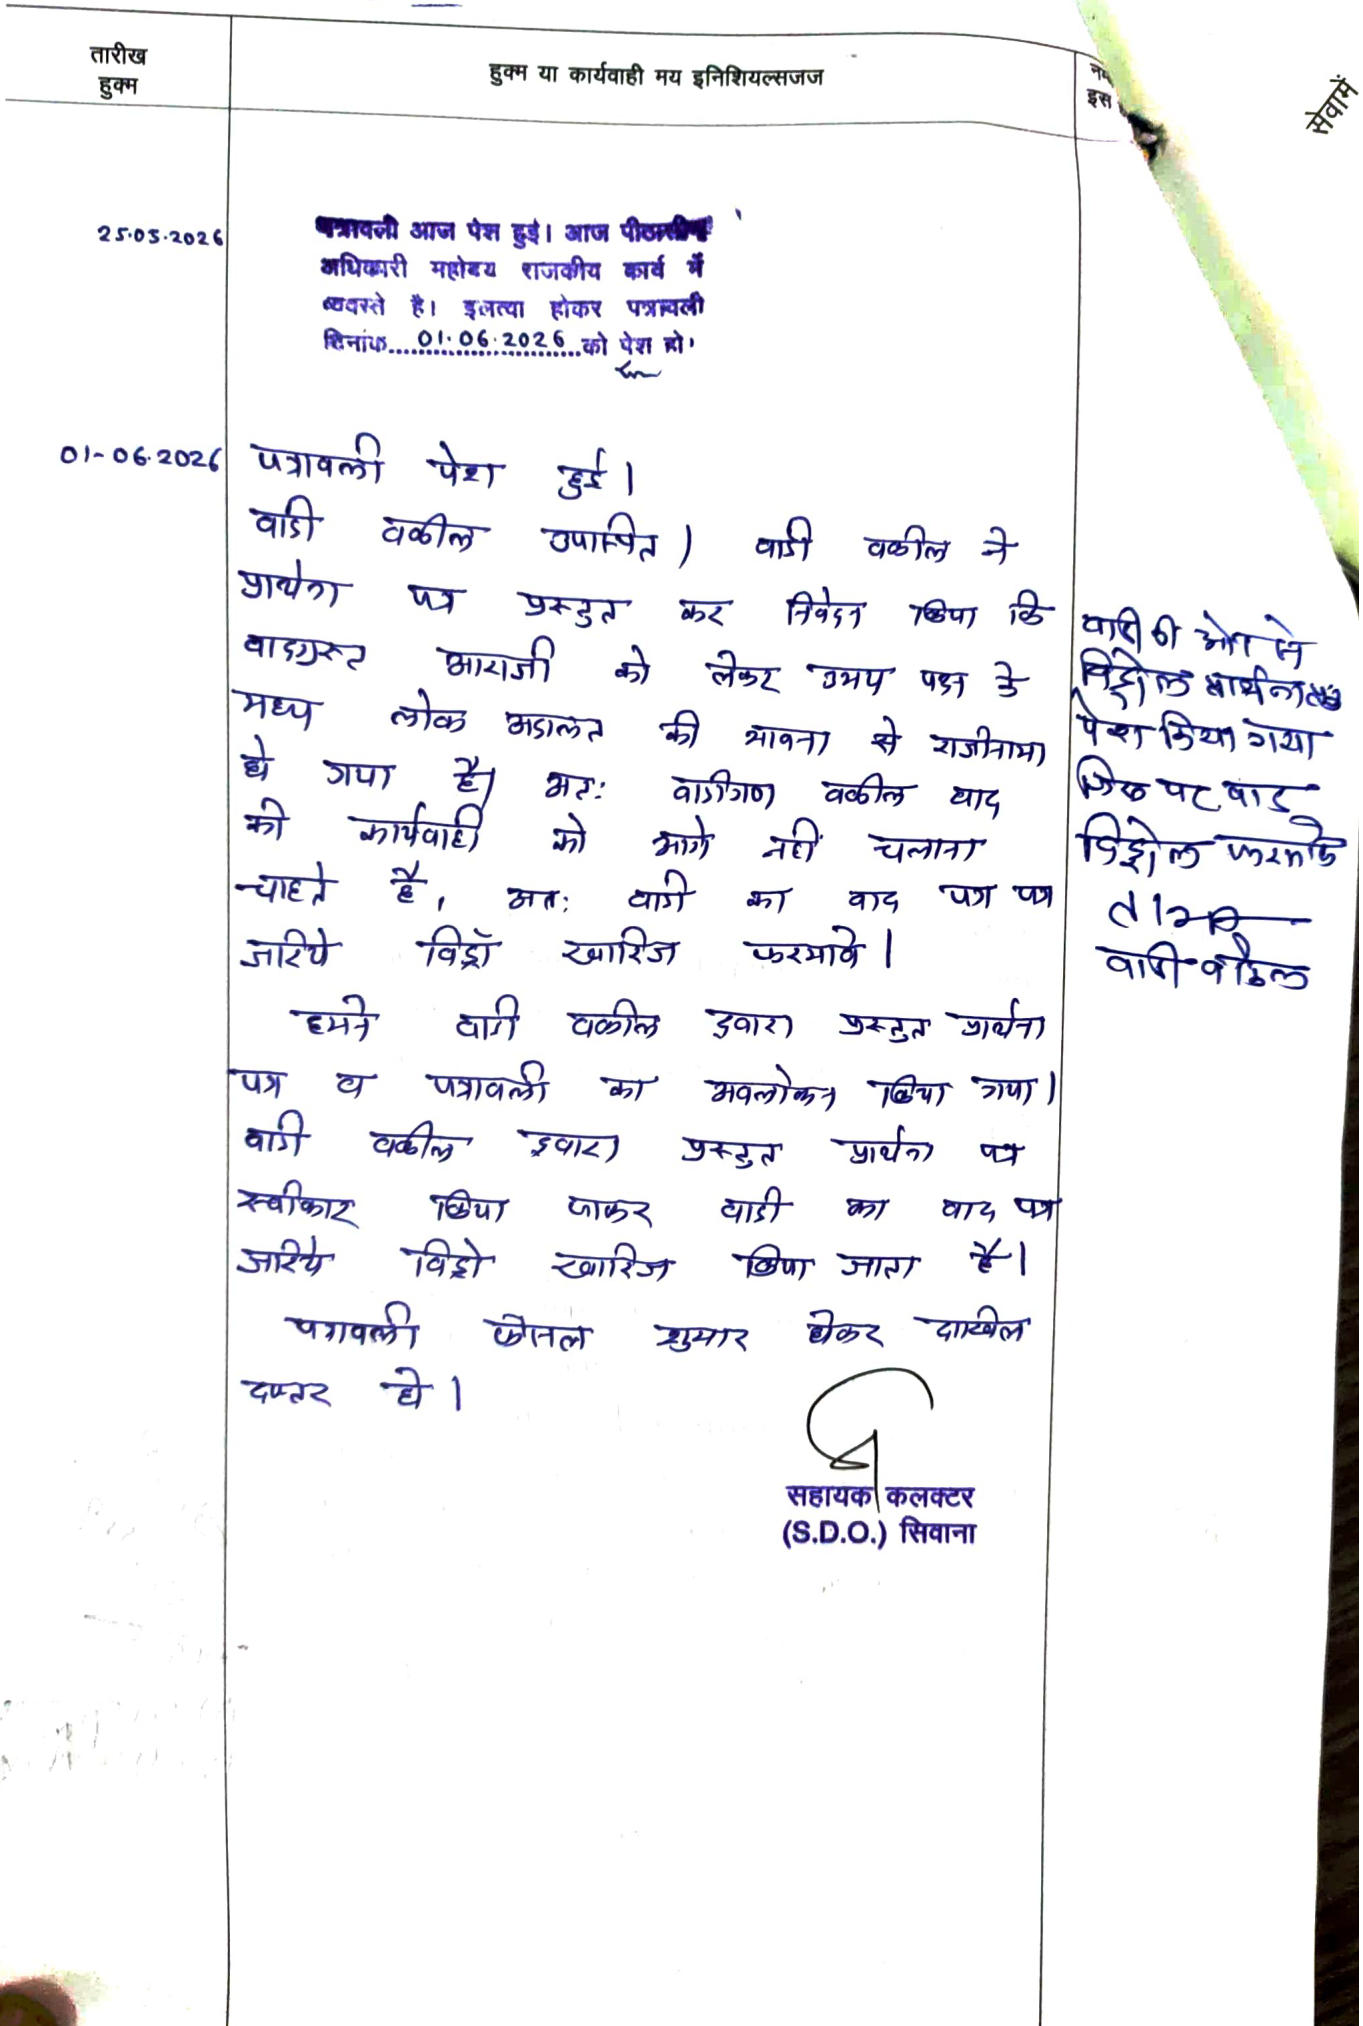 तारीख
हुक्म
हुक्म या कार्यवाही मय इनिशियल्सजज
इस
सेवामें
25.05.2026
पत्रावली आज पेश हुई। आज पीठासीन
अधिकारी महोदय राजकीय कार्य में
व्यवस्ते है। इलत्वा होकर पत्रावली
दिनांक.....01.06.2026.....को पेश हो।
01-06.2026
पत्रावली पेश हुई।
वादी वकील उपस्थित। वादी वकील ने
प्रार्थना पत्र प्रस्तुत कर निवेदन किया कि
वादग्रस्त आराजी को लेकर उभय पक्ष के
मध्य लोक अदालत की भावना से राजीनामा
हो गया है। अतः वादीगण वकील वाद
की कार्यवाही को आगे नहीं चलाना
चाहते है, अतः वादी का वाद पत्र पत्र
जरिये विड्रॉ खारिज फरमावे।
हमने वादी वकील द्वारा प्रस्तुत प्रार्थना
पत्र व पत्रावली का अवलोकन किया गया।
वादी वकील द्वारा प्रस्तुत प्रार्थना पत्र
स्वीकार किया जाकर वादी का वाद पत्र
जरिये विड्रो खारिज किया जाता है।
पत्रावली फैसल शुमार होकर दाखिल
दफ्तर हो।
वादी की ओर से
विड्रोल प्रार्थना पत्र
पेश किया गया
वाद
विड्रोल फरमावे
वादी वकील
सहायक कलक्टर
(S.D.O.) सिवाना